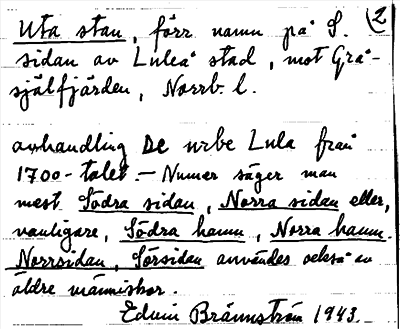 Uta stan, förr namn på S. (2
sidan av Luleå stad, mot Grå-
själfjärden, Norrb. l.
avhandling De urbe Lula från
1700-talet. — Numer säger man
mest Södra sidan, Norra sidan eller,
vanligare, Södra hamn, Norra hamn.
Norrsidan, Sörsidan användes också av
äldre människor.
Edvin Brännström 1943.